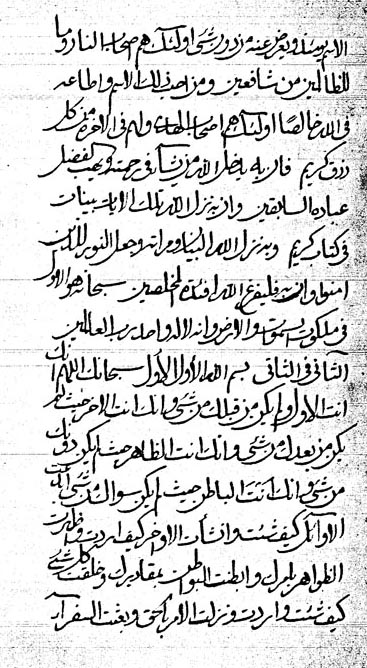 الاسم و يعرض عنه من دون شيء اولئك هم اصحاب النار و ما
للظالمين من شافعين و من احب ذلك الاسم و اطاعه
في الله خالصا اولئك هم اصحاب و لهم في الاخرة من كل
رزق كريم فان به يدخل الله من يشاء في رحمته و يهب بفضل
عباده السابقين و ان به نزل الله تلك الايات بينات
في كتاب كريم و به نزل الله البيان و جعل النور للذين
امنوا و ان به الله افئدة المخلصين سبحانه هو الاول
في ملكوت السموات و الارض و انه اله واحد رب العالمين
الثاني في الثاني بسم الله الاول الاول سبحانك اللهم انك
انت الاول و لم يكن من قبلك من شيء و انك انت الاخر حيث لم
يكن من بعدك من شيء و انك انت الظاهر حيث لم يكن دونك
من شيء و انك انت الباطن حيث لم يكن سواك من شيء
الاوائل كيف شئت و انشأت الاواخر كيف اردت و ظهرت
الظواهر بامرك و ابطنت البواطن بمقاديرك و خلقت كل شيء
كيف شئت و اردت و نزلت الامر بالحق و بعثت السفراء